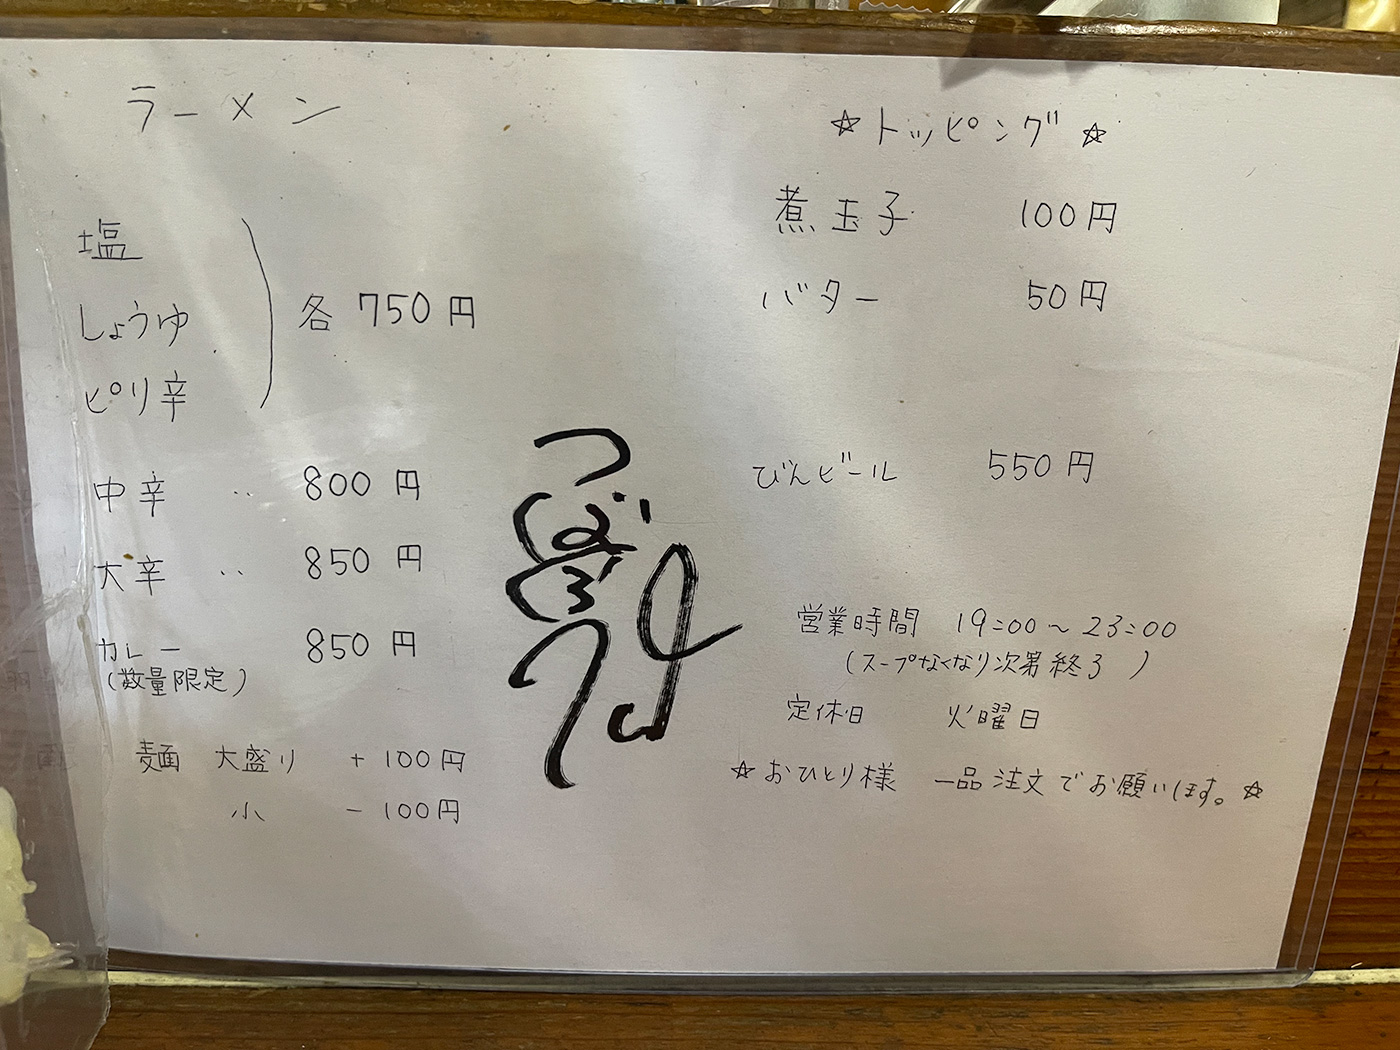 ラーメン
塩
しょうゆ
ピリ辛
各 750円
中辛 ‥ 800円
大辛 ‥ 850円
カレー 850円
(数量限定)
麺 大盛り +100円
小 −100円
つばらつばら
☆トッピング☆
煮玉子 100円
バター 50円
びんビール 550円
営業時間 19:00〜23:00
(スープなくなり次第終了)
定休日 火曜日
☆おひとり様 一品注文でお願いします。☆